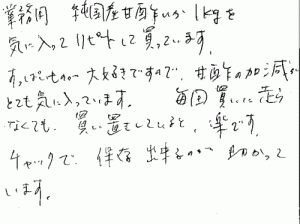 業務用 純国産甘酢いか1kgを
気に入ってリピートして買っています。
すっぱいものが大好きですので、甘酢の加減が
とても気に入っています。 毎回買いに走ら
なくても、買い置きしていると、楽です。
チャックで保存出来るのが助かって
います。